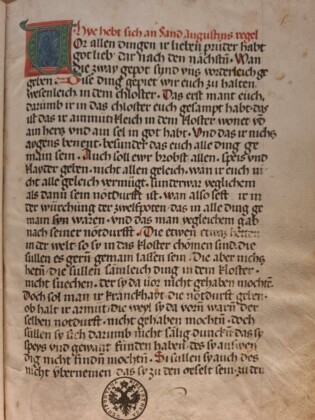 Hye hebt sich an Sand Augustins regel
Vor allen dingen ir lieben pruder habt
got lieb dar nach den nächsten. Wan
die zway gepot synd uns vorderleich ge
geben. Dise ding gepiet wir euch zu halten
wesenleich in dem closter. Das erst
darumb ir in das closter euch gesampt habt das
ist das ir ainmutikleich in dem kloster wonet vn
ain hertz und ain sel in got habt. Und das ir nichtz
aygens benent. besunder das euch alle ding ge
main sein. Auch soll ewr brobst allen speis und
klayder geben. nicht allen geleich. wan ir euch ni
cht alle geleich vermügt. sunderwar yeglichem
als dann sein nötdurft ist. wan also lest ir in
der würchung der zwelfpoten das in alle ding ge
main syn waren. und das man yegleichem gab
nach seiner nötdurft. Die etwen etwas hetten
in der welt so sy in das kloster chömen sind. die
süllen es gern gemain lassen sein. Die aber nichtz
heten die süllen sämleich ding in dem kloster
nicht suechen. der sy da vor nicht gehaben mochten.
Doch sol man ir kranckhait die nötdurft geben.
ob halt ir armut die weyl sy da vorn warn der
selben notdurft nicht gehaben mochten. doch
süllen sy sich darumb nicht sälig duncken das sy
speys und gewant funden haben. des sy auswen
dig nicht finden mochten. Sy süllen sy auch des
nicht ubernemen das sy zu den gesellt sein zu den